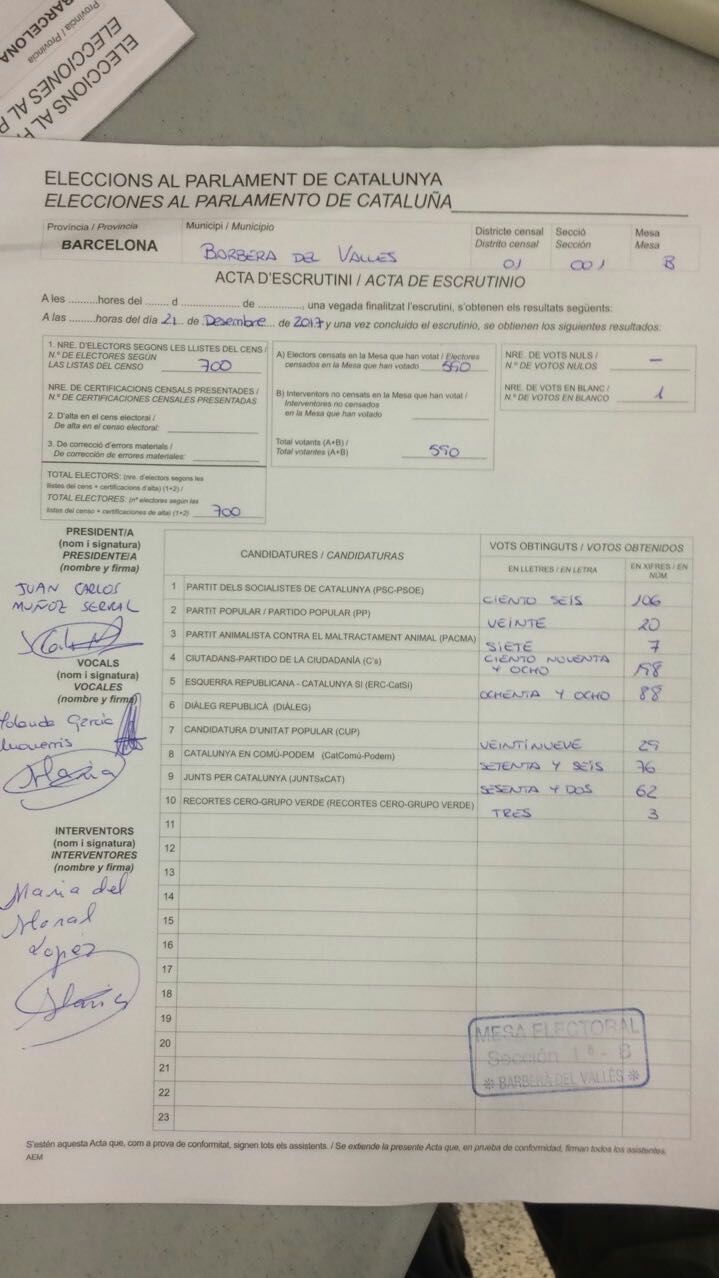 Província / Provincia
BARCELONA
ELECCIONS AL P
ELECCIONES AL P
ELECCIONS AL PARLAMENT DE CATALUNYA
ELECCIONES AL PARLAMENTO DE CATALUÑA
Província / Provincia
BARCELONA
Municipi / Municipio
BORBERA DEL VALLES
Districte censal
Distrito censal
01
Secció
Sección
001
Mesa
Mesa
B
ACTA D'ESCRUTINI / ACTA DE ESCRUTINIO
A les ..........hores del ........ d ................... de .............., una vegada finalitzat l'escrutini, s'obtenen els resultats següents:
A las .........horas del día 21 de Desembre de 2017 y una vez concluido el escrutinio, se obtienen los siguientes resultados:
1. NRE. D'ELECTORS SEGONS LES LLISTES DEL CENS /
N.º DE ELECTORES SEGÚN
LAS LISTAS DEL CENSO 700
NRE. DE CERTIFICACIONS CENSALS PRESENTADES /
N.º DE CERTIFICACIONES CENSALES PRESENTADAS
2. D'alta en el cens electoral /
De alta en el censo electoral:
3. De correcció d'errors materials /
De corrección de errores materiales:
TOTAL ELECTORS: (nre. d'electors segons les
llistes del cens + certificacions d'alta) (1+2) /
TOTAL ELECTORES: (nº electores según las
listas del censo + certificaciones de alta) (1+2) 700
A) Electors censats en la Mesa que han votat / Electores
censados en la Mesa que han votado 590
B) Interventors no censats en la Mesa que han votat /
Interventores no censados
en la Mesa que han votado
Total votants (A+B) /
Total votantes (A+B) 590
NRE. DE VOTS NULS /
N.º DE VOTOS NULOS –
NRE. DE VOTS EN BLANC /
N.º DE VOTOS EN BLANCO 1
PRESIDENT/A
(nom i signatura)
PRESIDENTE/A
(nombre y firma)
JUAN CARLOS
MUÑOZ SERRAL
VOCALS
(nom i signatura)
VOCALES
(nombre y firma)
Yolanda Garcia
Maria
INTERVENTORS
(nom i signatura)
INTERVENTORES
(nombre y firma)
Maria del
Moral
Lopez
Maria
CANDIDATURES / CANDIDATURAS
VOTS OBTINGUTS / VOTOS OBTENIDOS
EN LLETRES / EN LETRA
EN XIFRES / EN
NÚM.
1 PARTIT DELS SOCIALISTES DE CATALUNYA (PSC-PSOE) CIENTO SEIS 106
2 PARTIT POPULAR / PARTIDO POPULAR (PP) VEINTE 20
3 PARTIT ANIMALISTA CONTRA EL MALTRACTAMENT ANIMAL (PACMA) SIETE 7
4 CIUTADANS-PARTIDO DE LA CIUDADANÍA (C's) CIENTO NOVENTA
Y OCHO 198
5 ESQUERRA REPUBLICANA - CATALUNYA SI (ERC-CatSí) OCHENTA Y OCHO 88
6 DIÀLEG REPUBLICÀ (DIÀLEG)
7 CANDIDATURA D'UNITAT POPULAR (CUP) VEINTINUEVE 29
8 CATALUNYA EN COMÚ-PODEM (CatComú-Podem) SETENTA Y SEIS 76
9 JUNTS PER CATALUNYA (JUNTSxCAT) SESENTA Y DOS 62
10 RECORTES CERO-GRUPO VERDE (RECORTES CERO-GRUPO VERDE) TRES 3
11
12
13
14
15
16
17
18
19
20
21
22
23
MESA ELECTORAL
Sección 1ª - B
* BARBERÀ DEL VALLÈS *
S'estén aquesta Acta que, com a prova de conformitat, signen tots els assistents. / Se extiende la presente Acta que, en prueba de conformidad, firman todos los asistentes.
AEM